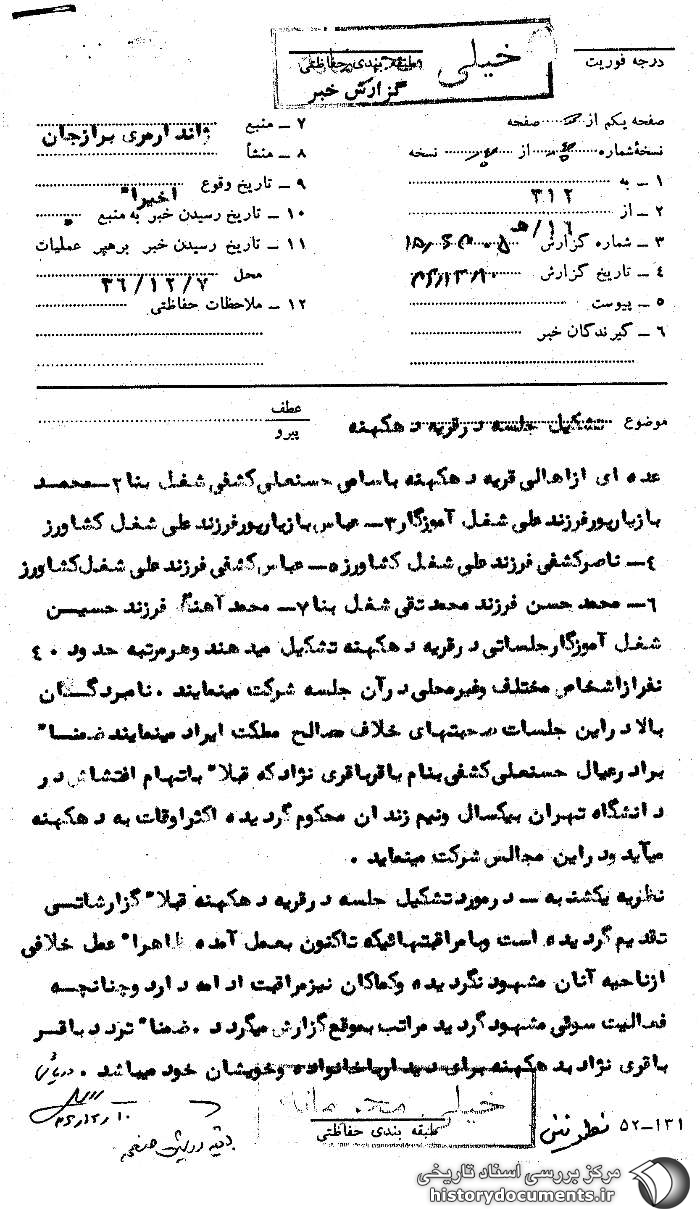 خیلی
طبقه بندی حفاظتی
گزارش خبر
درجه فوریت
صفحه یکم از صفحه
نسخهٔ شماره از نسخه
۱ ـ به ۳۱۲
۲ ـ از ۱۶/هـ
۳ ـ شماره گزارش
۴ ـ تاریخ گزارش
۵ ـ پیوست
۶ ـ گیرندگان خبر
۷ ـ منبع ژاندارمری برازجان
۸ ـ منشأ
۹ ـ تاریخ وقوع اخیرا"
۱۰ ـ تاریخ رسیدن خبر به منبع
۱۱ ـ تاریخ رسیدن خبر برهبر عملیات
محل ۳۶/۱۲/۷
۱۲ ـ ملاحظات حفاظتی
موضوع تشکیل جلسه در قریه دهکهنه
عطف
پیرو
عده ای از اهالی قریه دهکهنه باسامی حسنعلی کشفی شغل بنا ۲ـ محمد
بازیارپور فرزند علی شغل آموزگار ۳ـ عباس بازیارپور فرزند علی شغل کشاورز
۴ـ ناصر کشفی فرزند علی شغل کشاورز ۵ـ عباس کشفی فرزند علی شغل کشاورز
۶ـ محمد حسن فرزند محمد تقی شغل بنا ۷ـ محمد آهنگر فرزند حسین
شغل آموزگار جلساتی در قریه دهکهنه تشکیل میدهند و هر مرتبه حدود ۴۰
نفر از اشخاص مختلف و غیر محلی در آن جلسه شرکت مینمایند . نامبردگان
بالا در این جلسات صحبتهای خلاف مصالح مملکت ایراد مینمایند ضمنا"
برادر عیال حسنعلی کشفی بنام باقر باقری نژاد که قبلا" باتهام اغتشاش در
دانشگاه تهران بیکسال ونیم زندان محکوم گردیده اکثر اوقات به دهکهنه
میآید ودر این مجالس شرکت مینماید .
نظریه یکشنبه ـ در مورد تشکیل جلسه در قریه دهکهنه قبلا" گزارشاتی
تقدیم گردیده است وبا مراقبتهائیکه تاکنون بعمل آمده ظاهرا" عمل خلافی
از ناحیه آنان مشهود نگردیده وکماکان نیز مراقبت ادامه دارد وچنانچه
فعالیت سوئی مشهود گردید مراتب بموقع گزارش میگردد . ضمنا" تردد باقر
باقری نژاد به دهکهنه برای دیدار با خانواده وخویشان خود میباشد .
خیلی محرمانه
طبقه بندی حفاظتی
۵۲–۱۳۱
مرکز بررسی اسناد تاریخی
historydocuments.ir